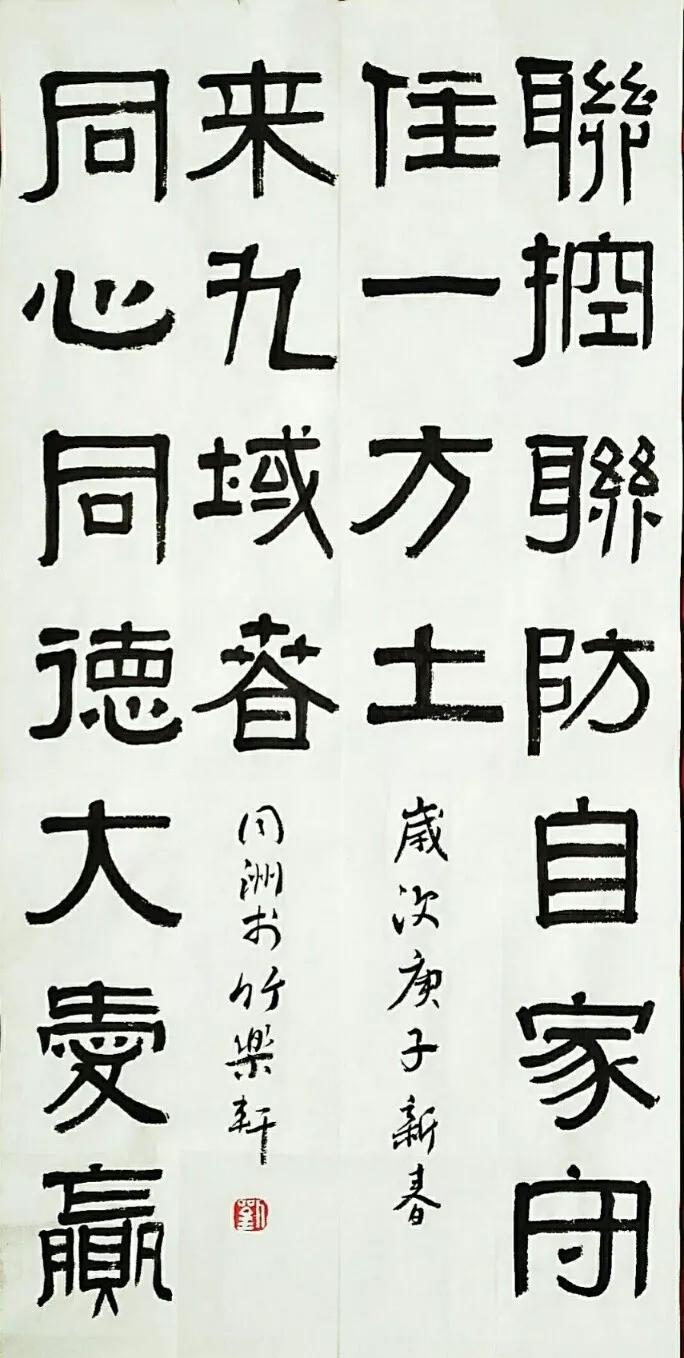 聯控聯防自家守
住一方土
歲次庚子新春
同心同德大愛贏
来九域春
同洲於竹樂軒
劉